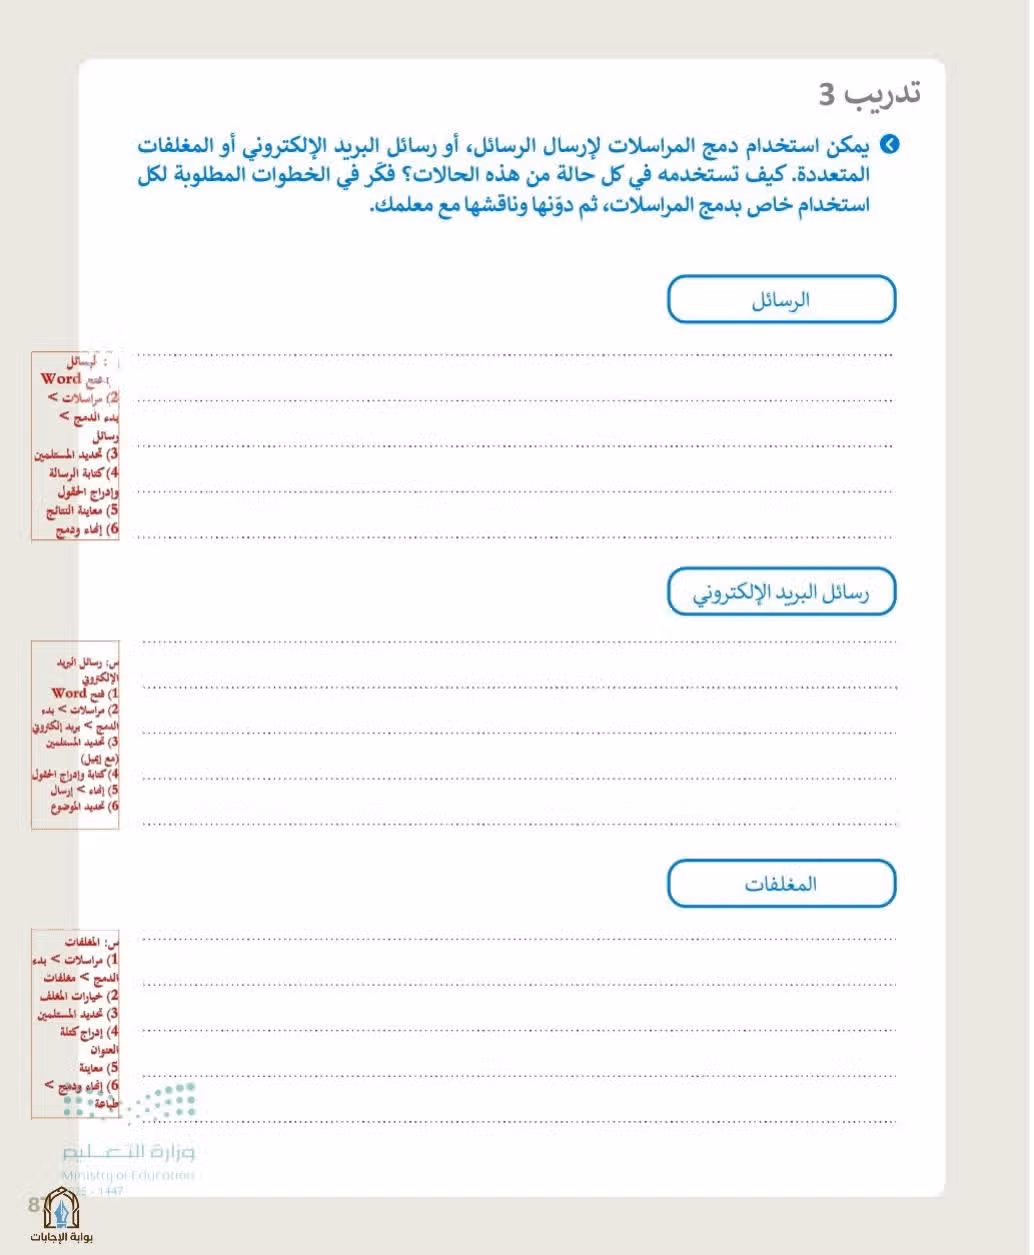 تدريب 3
يمكن استخدام دمج المراسلات لإرسال الرسائل، أو رسائل البريد الإلكتروني أو المغلفات
المتعددة. كيف تستخدمه في كل حالة من هذه الحالات؟ فكّر في الخطوات المطلوبة لكل
استخدام خاص بدمج المراسلات، ثم دوّنها وناقشها مع معلمك.
الرسائل
الرسائل
فتح Word
2) مراسلات >
بدء الدمج >
رسائل
3) تحديد المستلمين
4) كتابة الرسالة
وإدراج الحقول
5) معاينة النتائج
6) إنهاء ودمج
رسائل البريد الإلكتروني
س: رسائل البريد
الإلكتروني
1) فتح Word
2) مراسلات > بدء
الدمج > بريد إلكتروني
3) تحديد المستلمين
(مع إيميل)
4) كتابة وإدراج الحقول
5) إنهاء > إرسال
6) تحديد الموضوع
المغلفات
س: المغلفات
1) مراسلات > بدء
الدمج > مغلفات
2) خيارات المغلف
3) تحديد المستلمين
4) إدراج كتلة
العنوان
5) معاينة
6) إنهاء ودمج >
طباعة
وزارة التعليم
Ministry of Education
- 1447
بوابة الإجابات